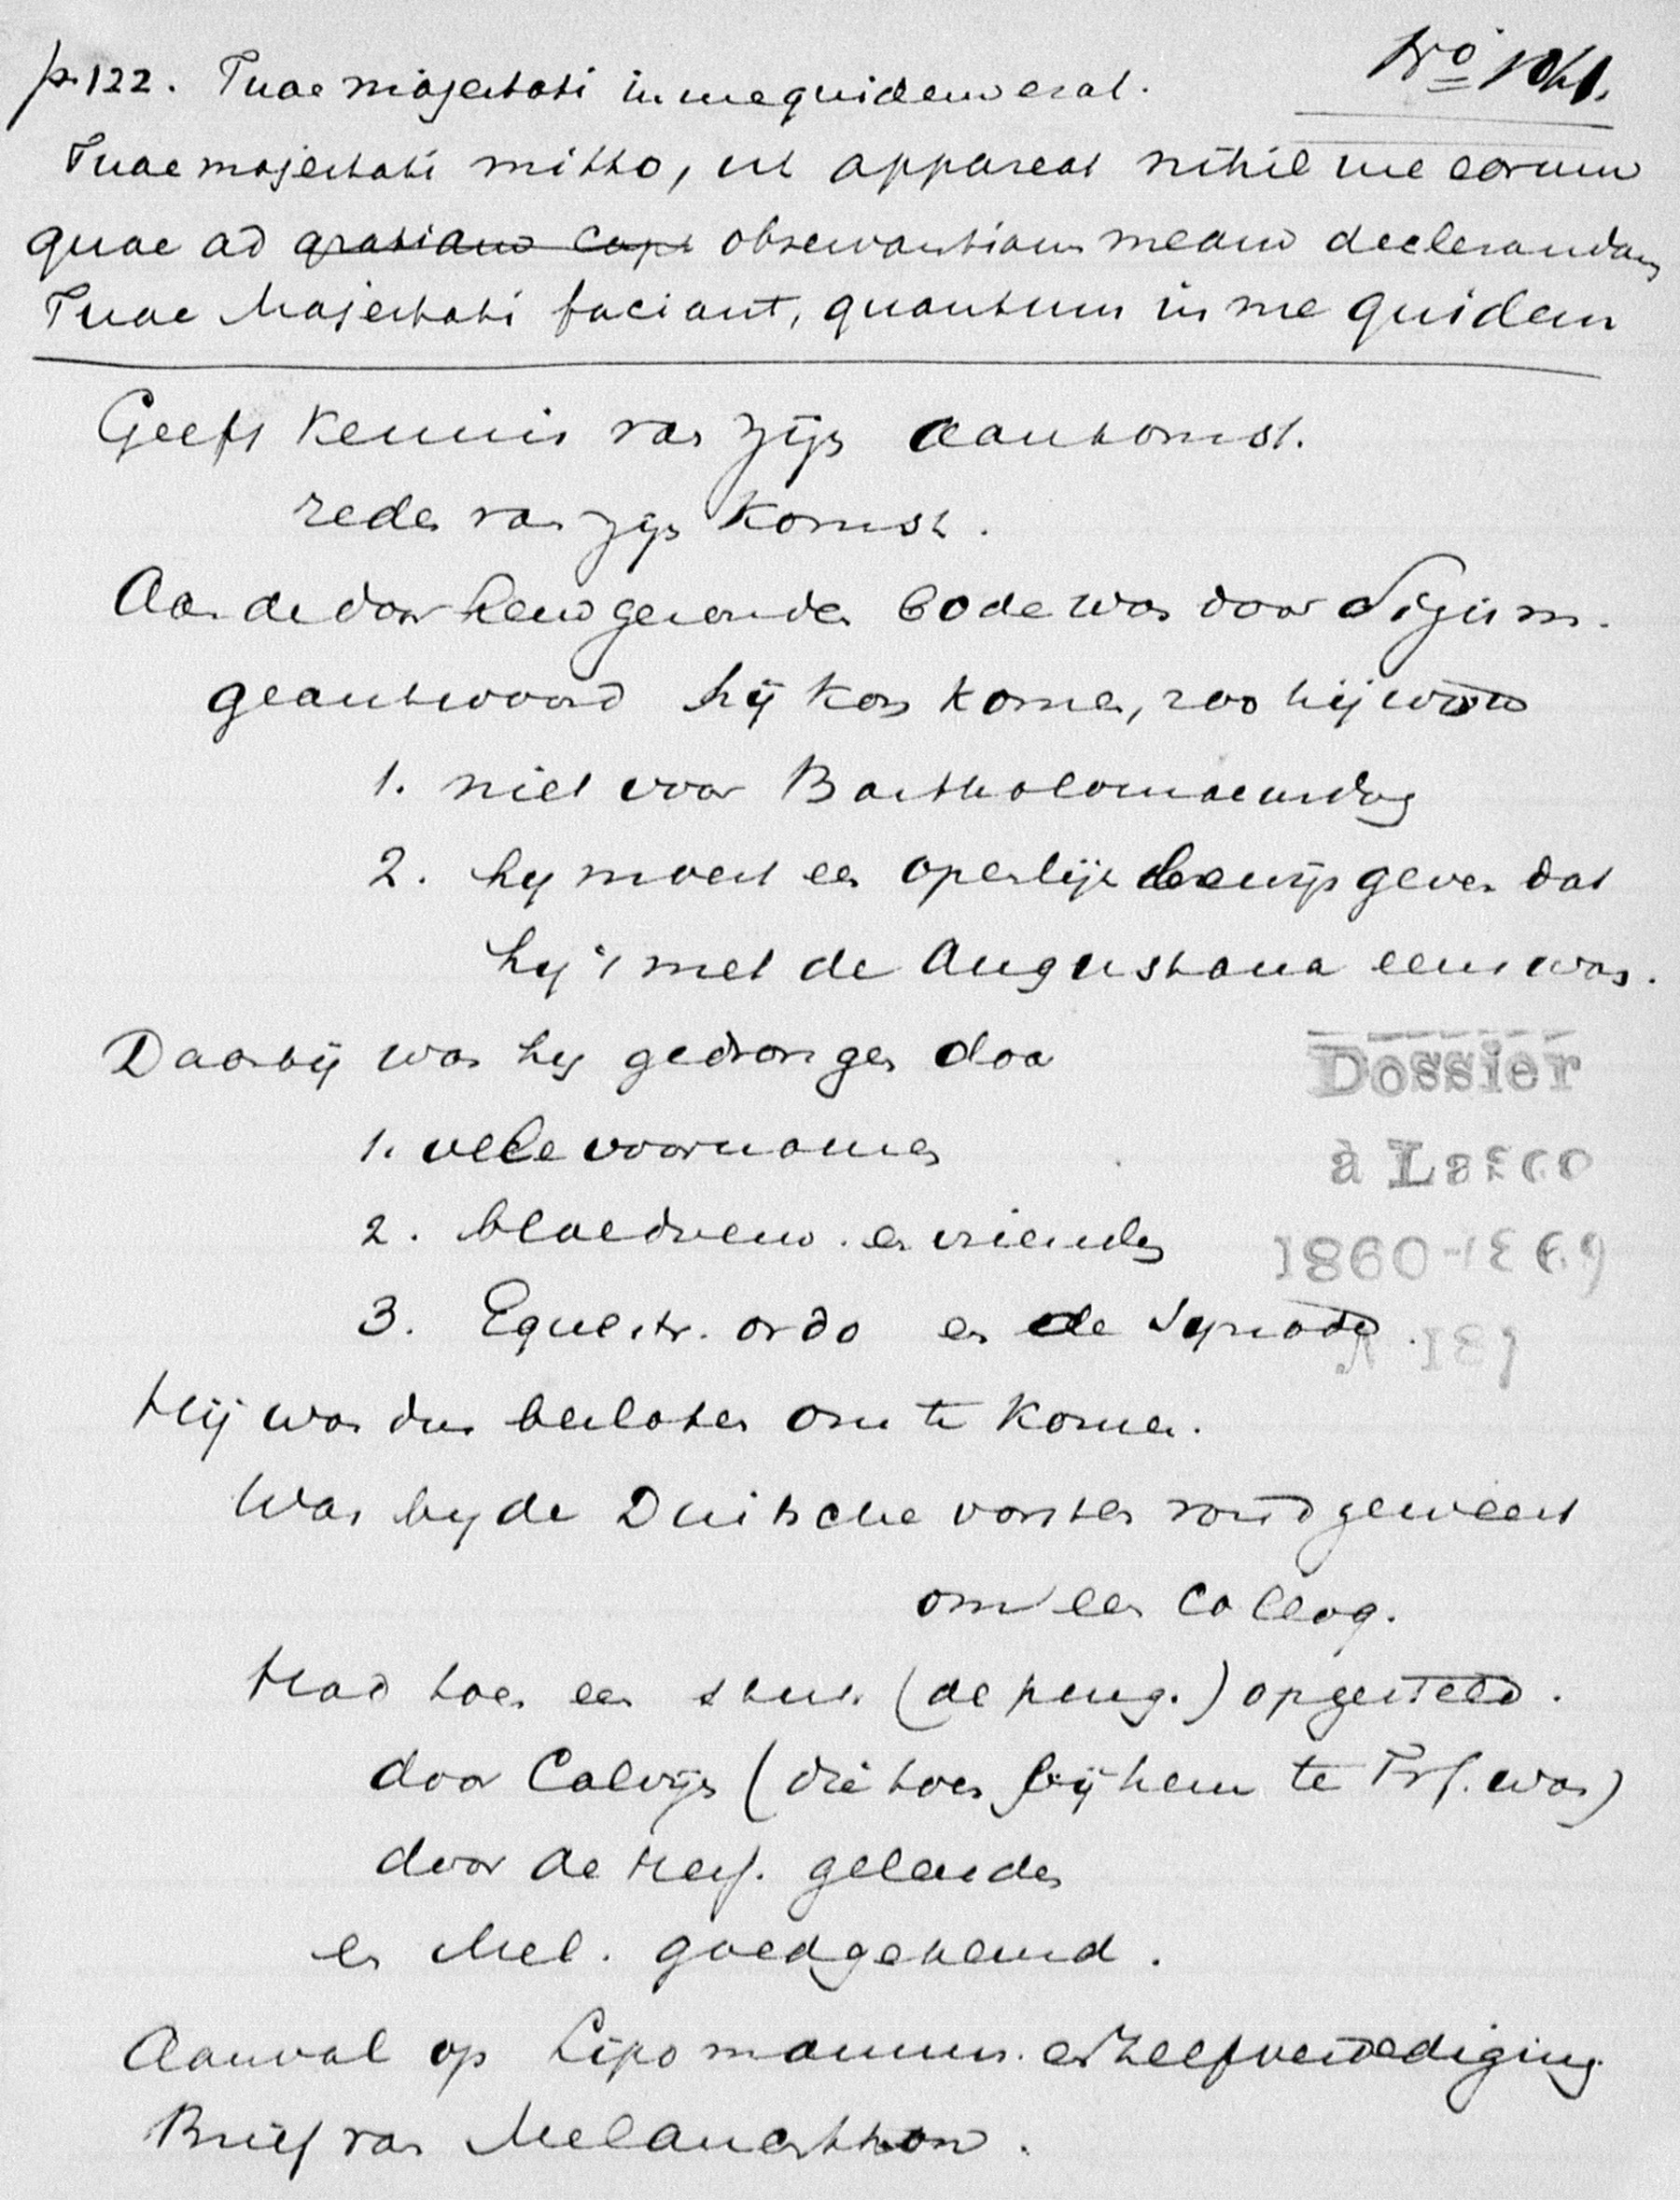 p. 122. Tuae majestati in me quidem erat.
No 1041.
Tuae majestati mitto, ut appareat nihil me eorum
quae ad gratiam observantiam meam declarandam
Tuae Majestati faciant, quantum in me quidem
Geeft kennis van zijn aankomst.
reden van zijn komst.
Aan de door hem gezonden bode was door Sigism.
geantwoord hij kon komen, zoo hij
1. niet voor Bartholomaeusdag
2. hy moest een openlijk bewijs geven dat
hy 't met de Augustana eens was.
Daarbij was hy gedrongen door
1. vele voornamen
2. bloedverw. en vrienden
3. Equestr. ordo en de Synode.
Hij was dus besloten om te komen.
Was by de Duitsche vorsten rond geweest
om een Colloq.
Had toen een stuk (de purg.) opgesteld.
door Calvijn (die toen bij hem te Frf. was)
door de Herf. gelanden
en Mel. goedgekeurd.
Aanval op Lipomannus. en zelfverdediging
Brief van Melanchthon.
Dossier
à Lasco
1860-1869
R 181